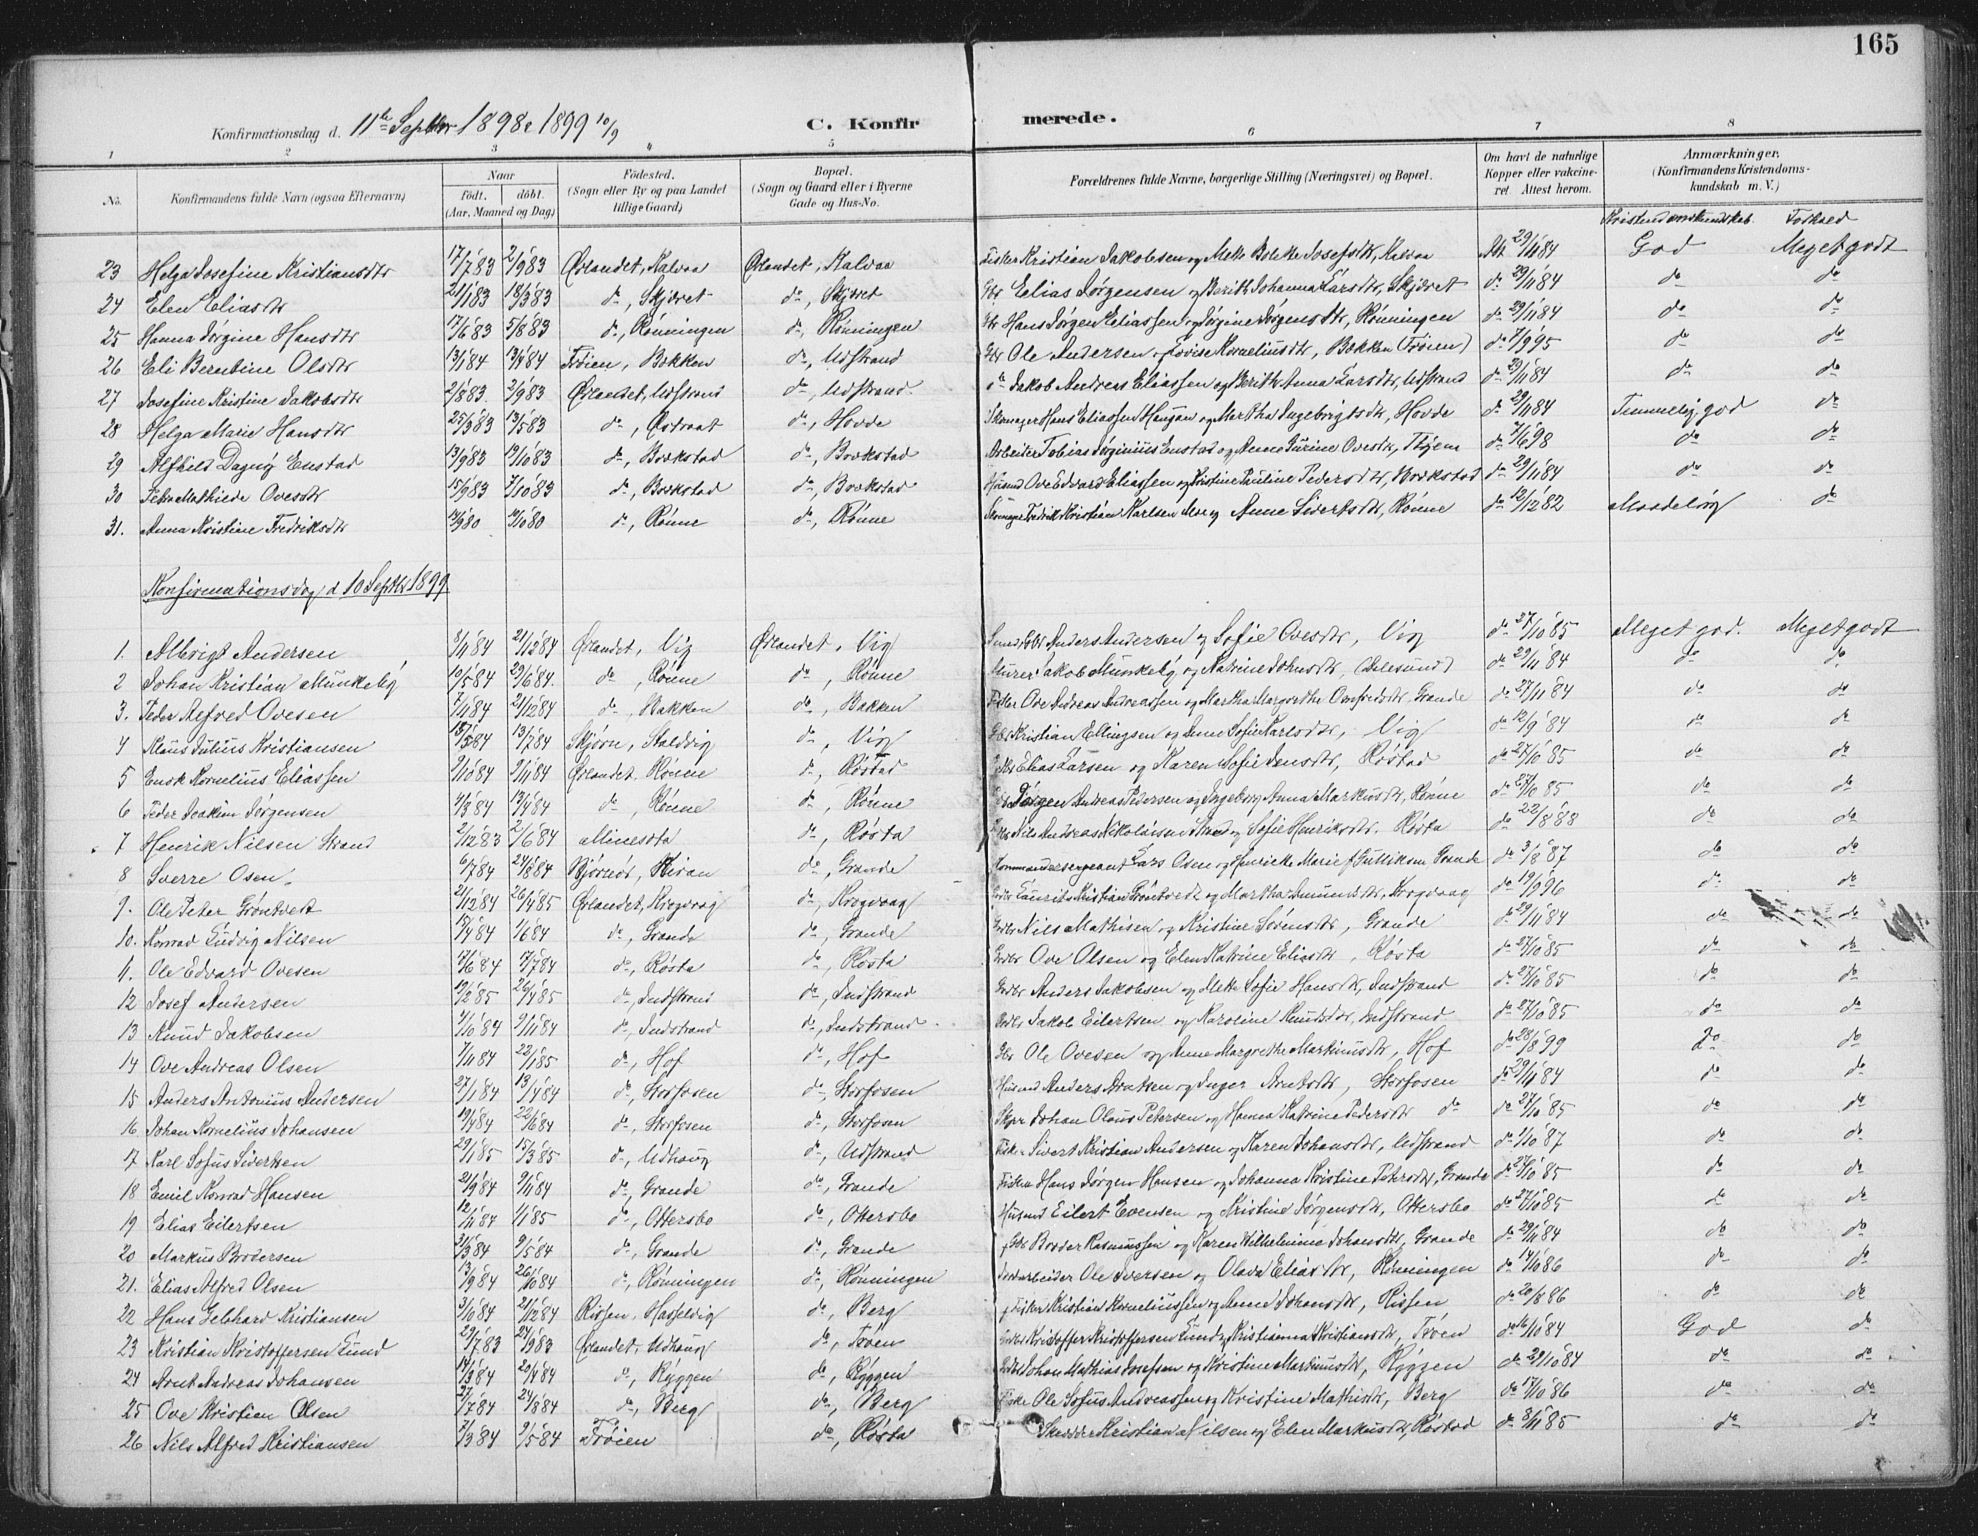 165
Konfirmationsdag d. 11te Septbr 1898 & 1899 10/9 C. Konfirmerede.
1 2 3 4 5 6 7 8
No. Konfirmandens fulde Navn (ogsaa Efternavn) Naar født. døbt. (Aar, Maaned og Dag) Fødested. (Sogn eller By og paa Landet tillige Gaard) Bopæl. (Sogn og Gaard eller i Byerne Gade og Hus-No. Forældrenes fulde Navne, borgerlige Stilling (Næringsvei) og Bopæl. Om havt de naturlige Kopper eller vakcineret. Attest herom. Anmærkninger. (Konfirmandens Kristendomskundskab m. V.)
Kristendomskundskab Forhold
23 Helga Josefine Kristiansdtr 17/7 83 2/9 83 Ørlandet, Kalvaa Ørlandet, Kalvaa Fisker Kristian Jakobsen og Mette Josefsdtr, Kalvaa Att 29/11 84 God Meget godt
24 Elen Eliasdtr 21/1 83 18/3 83 do, Skjæret do, Skjæret Gbr Elias Jørgensen og Berith Johanna Larsdtr, Skjæret do 29/11 84 do do
25 Hanna Jørgine Hansdtr 17/6 83 5/8 83 do, Rønningen do, Rønningen Gbr Hans Jørgen Eliassen og Jørgine Jørgensdtr, Rønningen do 29/11 84 do do
26 Eli Berntine Olsdtr 13/1 84 14/4 84 Frøien, Bekken do, Udstrand Gbr Ole Andersen og Lovise Korneliusdtr, Bekken (Frøien) do 7/9 95 do do
27 Josefine Kristine Jakobsdtr 2/8 83 2/9 83 Ørlandet, Udstrand do, Udstrand do Jakob Andreas Eliassen og Berith Anna Larsdtr, Udstrand do 29/11 84 do do
28 Helga Marie Hansdtr 25/3 83 13/5 83 do, Østraat do, Hovde Skomager Hans Eliassen Haugan og Martha Ingebrigtsdtr, Hovde do 29/11 84 Temmelig god do
29 Alfhild Dagny Enstad 13/9 83 14/10 83 do, Brekstad do, Brekstad Arbeider Tobias Jørginius Enstad og Anne Gurine Ovesdtr, Thjem do 7/6 98 do do
30 Petra Mathilde Ovesdtr 15/9 83 7/10 83 do, Brekstad do, Brekstad Husmd Ove Edvard Eliassen og Kristine Pauline Pedersdtr, Brekstad do 29/11 84 do do
31. Anna Kristine Fredriksdtr 14/9 80 /10 80 do, Rønne do, Rønne Skomager Fredrik Kristian Karlsen Moe og Anne Sivertsdtr, Rønne do 12/12 82 Maadelig do
Konfirmationsdag d 10 Septbr 1899
1. Albrigt Andersen 8/11 84 21/12 84 Ørlandet, Vig Ørlandet, Vig Anders Andersen og Sofie Ovesdtr, Vig do 27/10 85 Meget god. Meget godt
2 Johan Kristian Munkeby 10/5 84 29/6 84. do, Rønne do, Rønne Murer Jakob Munkeby og Katrine Johnsdtr, (Aalesund) do 29/11 84 do do
3. Peder Alfred Ovesen 7/11 84 21/12 84 do, Bakken do, Bakken Fisker Ove Andreas Andreassen og Martha Margrethe Onofredsdtr, Grande do 27/11 84 do do
4 Klaus Julius Kristiansen 15/5 84 13/7 84 Skjørn, Staldvig do, Vig Gbr Kristian Ellingsen og Anne Sofie Karlsdtr, Vig do 12/9 84 do do
5 Enok Kornelius Eliassen 2/10 84 2/11 84 Ørlandet. Rønne do, Røstad Elias Larsen og Karen Sofie Jensdtr, Røstad do 27/10 85 do do
6 Peder Joakim Jørgensen 4/3 84 13/4 84 do, Rønne do, Rønne Jørgen Andreas Pedersen og Ingeborg Anna Markusdtr, Rønne do 27/10 85 do do
7 Henrik Nilsen Strand 2/12 83 2/6 84 Minesota do, Røsta Nils Andreas Nikolaisen Strand og Sofie Henriksdtr. Røsta do 22/8 88 do do
8 Sverre Osen. 6/7 84 24/8 84 Bjørnør, Kiran do, Grande Kommandersergeant Lars Osen og Henrikke Marie f Gulliksen Grande do 3/8 87 do do
9. Ole Peter Grøntvedt 21/12 84 26/4 85 Ørlandet, Krogvaag do, Krogvaag Laurits Kristian Grøntvedt og Martha Amundsdtr, Krogvaag do 19/9 96 do do
10. Konrad Ludvig Nilsen 15/4 84 1/6 84 do, Grande do, Grande Nils Mathisen og Kristine Sørensdtr, Grande do 29/11 84 do do
11. Ole Edvard Ovesen 7/6 84 7/7 84 do, Røsta do, Røsta Ove Olsen og Elen Katrine Eliasdtr, Røsta do 27/10 85 do do
12 Josef Andersen 19/2 85 26/4 85 do, Indstrand do, Indstrand Anders Jakobsen og Mette Sofie Hansdtr, Indstrand do 27/10 85 do do
13 Knud Jakobsen 7/10 84 9/11 84 do, Indstrand do, Indstrand Jakob Eilertsen og Karoline Knudsdtr, Indstrand do 27/10 85 do do
14 Ove Andreas Olsen 7/11 84 22/1 85 do, Hof do, Hof Gbr Ole Ovesen og Anne Margrethe Markusdtr, Hof do 28/8 99 do do
15 Anders Antonius Andersen 27/1 84 13/4 84 do, Storfosen do, Storfosen Husmd Anders Arntsen og Inger Arntsdtr, Storfosen do 29/11 84 do do
16 Johan Kornelius Johansen 19/4 84 22/6 84 do, Storfosen do, Storfosen Johan Olaus Petersen og Hanna Katrine Pedersdtr do do 27/10 85 do do
17 Karl Sofus Sivertsen 29/1 85 15/3 85 do, Udhaug do, Udstrand Sivert Kristian Andersen og Karen Johansdtr, Udstrand do 1/10 87 do do
18 Emil Konrad Hansen 21/9 84 9/11 84 do, Grande do, Grande Fisker Hans Jørgen Hansen og Johanna Kristine Petersdtr, Grande do 27/10 85 do do
19 Elias Eilertsen 12/11 84 1/1 85 do, Ottersbo do, Ottersbo Husmd Eilert Evensen og Kristine Jørgensdtr, Ottersbo do 27/10 85 do do
20 Markus Brodersen 21/3 84 9/5 84 do, Grande do, Grande Broder Rasmussen og Karen Wilhelmine Johansdtr, Grande do 29/11 84 do do
21. Elias Alfred Olsen 13/9 84 26/10 84 do, Rønningen do, Rønningen Jordarbeider Ole Iversen og Olava Eliasdtr, Rønningen do 14/10 86 do do
22 Hans Gebhard Kristiansen 3/10 84 21/12 84 Rissen, Hasselvig do, Berg Fisker Kristian Korneliussen og Anne Johansdtr, Rissen do 20/8 86 do do
23 Kristian Kristoffersen Lund 29/7 83 24/9 83 Ørlandet, Udhaug do, Toven Kristoffer Kristoffersen Lund og Kristianna Kristiansdtr, Toven do 16/10 84 God do
24 Arnt Andreas Johansen 14/3 84 20/4 84 do, Ryggen do, Ryggen Johan Mathias Josefsen og Kristine Markusdtr, Ryggen do 29/10 84 do do
25 Ove Kristian Olsen 27/7 84 24/8 84 do, Berg do, Berg Ole Sofus Andreassen og Kristine Mathisdtr, Berg do 17/10 86 do do
26 Nils Alfred Kristiansen 7/3 84 9/5 84 Frøien do, Røsta Skrædder Kristian Nilsen og Elen Markusdtr, Røstad do 3/11 85 do do